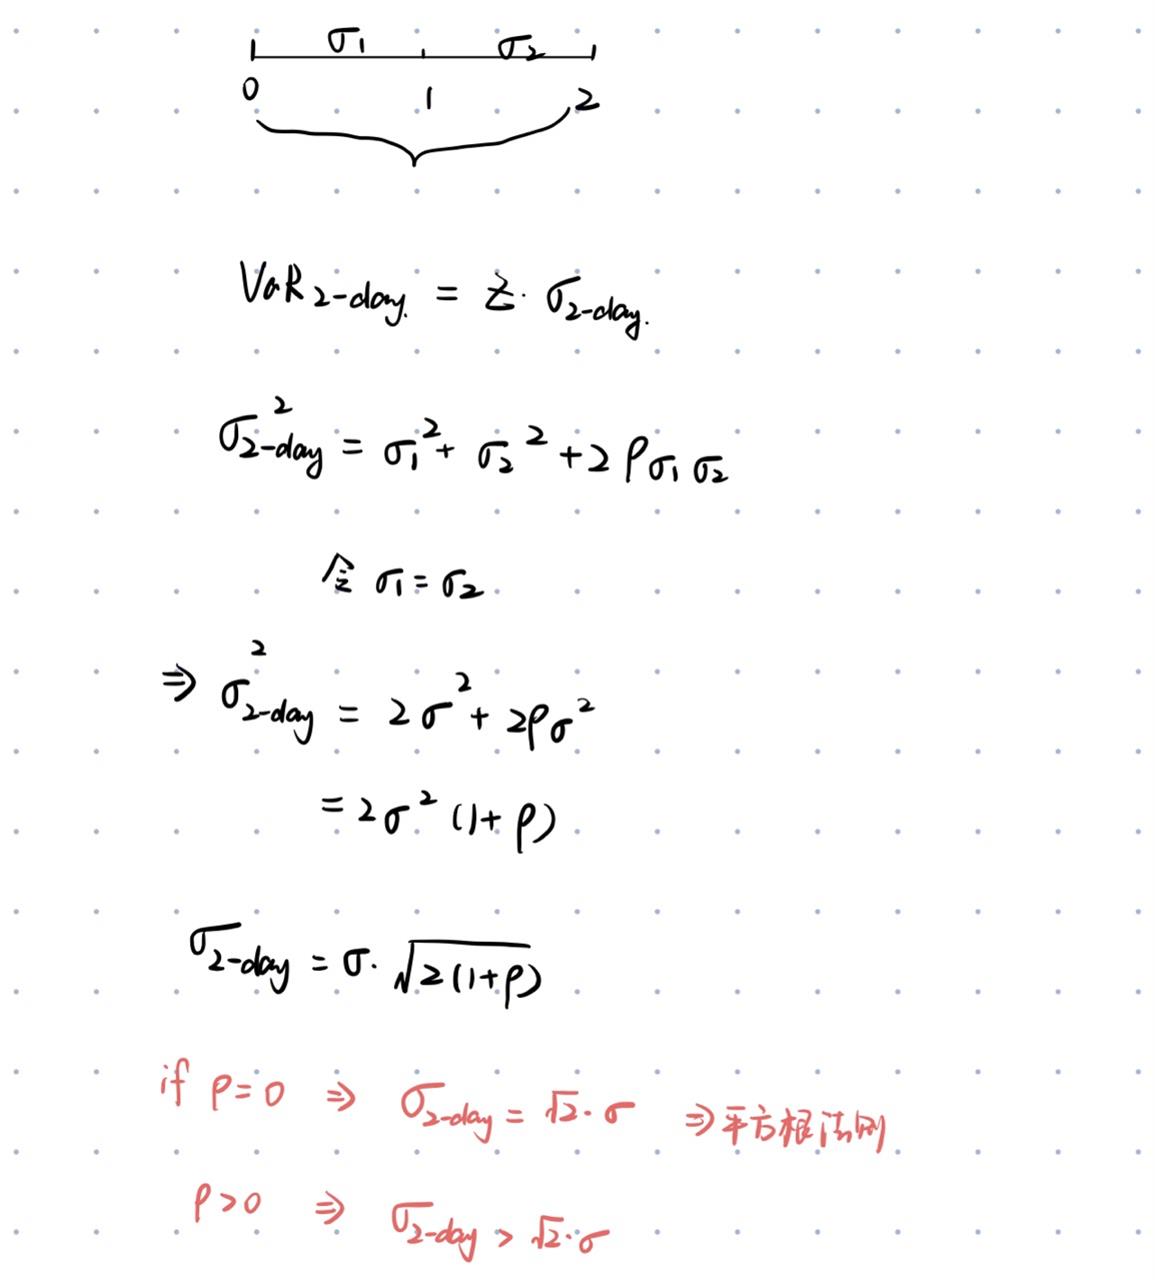 σ₁ σ₂
0 1 2
VaR₂₋day. = Z · σ₂₋day.
σ₂₋day² = σ₁² + σ₂² + 2ρσ₁σ₂
令 σ₁ = σ₂
⇒ σ₂₋day² = 2σ² + 2ρσ²
= 2σ² (1+ρ)
σ₂₋day = σ · √2(1+ρ)
if ρ = 0 ⇒ σ₂₋day = √2 · σ ⇒ 平方根法则
ρ > 0 ⇒ σ₂₋day > √2 · σ